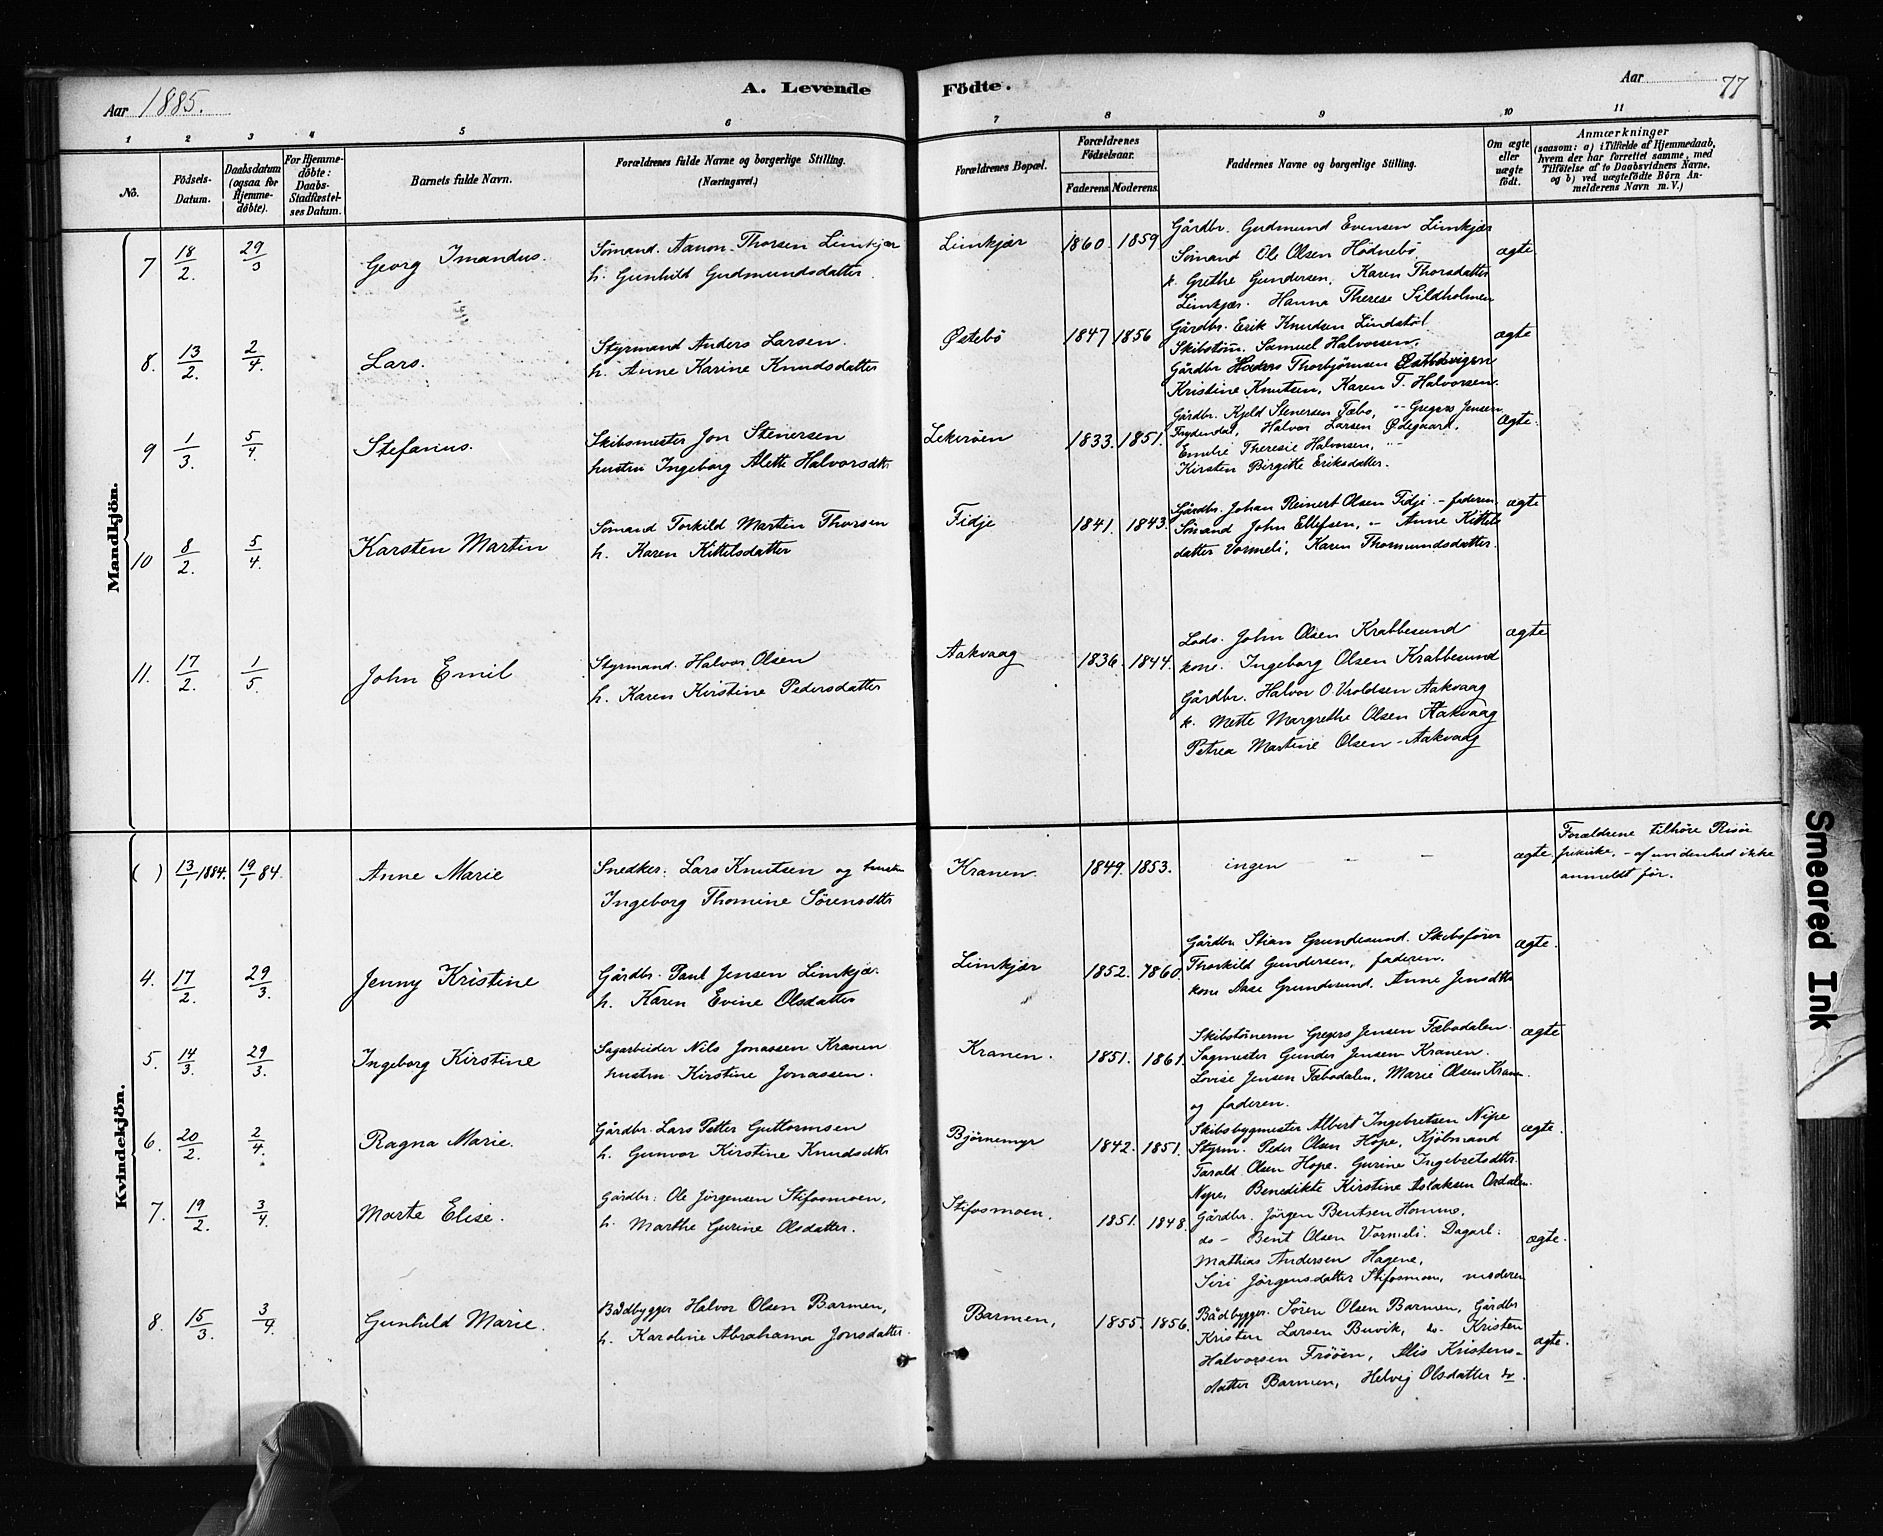 Aar 1885.
A. Levende
Födte.
Aar
77
1
2
3
4
5
6
7
8
9
10
11
No.
Födsels-Datum.
Daabsdatum (ogsaa for Hjemme-döbte).
For Hjemme-döbte: Daabs-Stadfæstel-ses Datum.
Barnets fulde Navn.
Forældrenes fulde Navne og borgerlige Stilling. (Næringsvei.)
Forældrenes Bopæl.
Forældrenes Födselsaar.
Faderens.
Moderens.
Faddernes Navne og borgerlige Stilling.
Om ægte eller uægte födt.
Anmærkninger
(saasom: a) i Tilfælde af Hjemmedaab,
hvem der har forrettet samme, med
Tilföielse af to Daabsvidners Navne,
og b) ved uægtefödte Börn An-
melderens Navn m.V.)
Mandkjön.
7 18/2 29/3 Georg Imandus. Sömand. Aanon Thorsen Limkjær
h. Gunhild Gudmundsdatter.
Limkjær 1860. 1859 Gårdbr. Gudmund Evensen Limkjær
Sömand Ole Olsen Hödnebö
k. Grethe Gundersen, Karen Thorsdatter
Limkjær. Hanna Therese Sildholmen
ægte
8. 13/2 2/4 Lars. Styrmand Anders Larsen.
h. Anne Karine Knudsdatter
Östebö 1847 1856 Gårdbr. Erik Knudsen Lindstöl
Skibstöm. Samuel Halvorsen,
Gårdbr Thorbjörnsen
Kristine Knutsen, Karen T. Halvorsen.
ægte
9 1/3 5/4 Stefanus. Skibsmester Jon Stenersen
hustru Ingeborg Alette Halvorsdtr
Lekeröen 1833. 1851. Gårdbr. Kjeld Stenersen Tæbo, " Gregers Jensen
Frydendal, Halvor Larsen Ödegaard,
Emelie Theresie Halvorsen, "
Kirsten Birgitte Eriksdatter.
ægte.
10 8/2 5/4. Karsten Martin Sömand Torkild Martin Thorsen
h. Karen Kittelsdatter
Fidje 1841. 1843. Gårdbr. Johan Reinert Olsen Fidje - faderen,
Sömand John Ellefsen, - Anne Kittels
datter Vormeli, Karen Thomundsdatter.
ægte
11. 17/2. 1/5. John Emil Styrmand. Halvor Olsen
h. Karen Kirstine Pedersdatter
Aakvaag 1836. 1844. Lods. John Olsen Krabbesund
kone. Ingeborg Olsen Krabbesund
Gårdbr. Halvor O. Vroldsen Aakvaag
k. Mette Margrethe Olsen Aakvaag
Petrea Martine Olsen - Aakvaag
ægte
Kvindekjön.
( ) 13/1 1884. 19/1 84. Anne Marie Snedker. Lars Knutsen og hustru
Ingeborg Thomine Sörensdtr
Kranen. 1849. 1853. ingen - - -
ægte. Forældrene tilhöre Risör
frikirke, - af uvidenhed ikke
anmeldt för.
4. 17/2 29/3. Jenny Kristine Gårdbr. Paul Jensen Limkjær.
h. Karen Evine Olsdatter
Limkjær 1852. 1860. Gårdbr Stian Grundesund. Skibsförer
Thorkild Gundersen, faderen.
kone Aase Grundesund. Anne Jensdtr
ægte.
5. 14/3. 29/3. Ingeborg Kirstine Sagarbeider Nils Jonassen Kranen
hustru Kirstine Jonassen.
Kranen. 1851. 1861. Skibstömerm Gregers Jensen Tæbodalen.
Sagmester Gunder Jensen Kranen.
Lovise Jensen Tæbodalen, Marie Olsen Kranen
og faderen.
ægte
6. 20/2. 2/4. Ragna Marie. Gårdbr. Lars Petter Guttormsen
h. Gunvor Kirstine Knudsdtr
Björnemyr 1842. 1851. Skibsbygmester Albert Ingebretsen Nipe
Styrm. Peder Olsen Hope, Kjöbmand
Tarald Olsen Hope. Gurine Ingebretsdtr.
Nipe, Benedikte Kirstine Aslaksen Ordalen.
ægte.
7. 19/2. 3/4. Marte Elise. Gårdbr: Ole Jörgensen Stifosmoen,
h. Marthe Gurine Olsdatter.
Stifosmoen. 1851. 1848. Gårdbr. Jörgen Bentsen Homme,
do - Bent Olsen Vormeli. Dagarb:
Mathias Andersen Hagene,
Siri Jörgensdatter Stifosmoen, moderen
ægte.
8. 15/3. 3/4. Gunhild Marie. Bådbygger Halvor Olsen Barmen,
h. Karoline Abrahama Jonsdatter.
Barmen, 1855. 1856. Bådbygger. Sören Olsen Barmen, Gårdbr
Kristen Larsen Buvik, do. Kristen
Halvorsen Fröoen, Alis Kristens-
datter Barmen, Helvig Olsdatter do.
ægte.
Smeared Ink